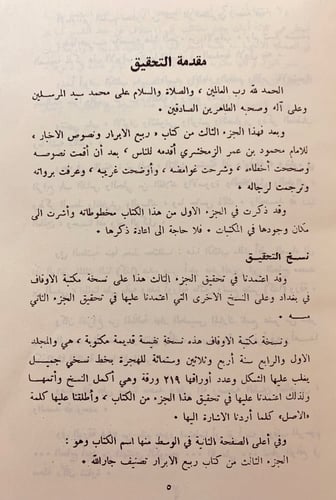 مقدمة التحقيق
الحمد لله رب العالمين ، والصلاة والسلام على محمد سيد المرسلين
وعلى آله وصحبه الطاهرين الصادقين .
وبعد فهذا الجزء الثالث من كتاب « ربيع الابرار ونصوص الاخبار ،
للامام محمود بن عمر الزمخشري أقدمه للناس ، بعد أن أقمت نصوصه
وصححت أخطاءه ، وشرحت غوامضه ، وأوضحت غريبه ، وعرفت برواته
وترجمت لرجاله .
وقد ذكرت في الجزء الاول من هذا الكتاب مخطوطاته وأشرت الى
مكان وجودها في المكتبات . فلا حاجة الى اعادة ذكرها .
نسخ التحقيق
وقد اعتمدنا في تحقيق الجزء الثالث هذا على نسخة مكتبة الاوقاف
في بغداد وعلى النسخ الاخرى التي اعتمدنا عليها في تحقيق الجزء الثاني
منه .
ونسخة مكتبة الاوقاف هذه نسخة نفيسة قديمة مكتوبة ، هي والمجلد
الاول والرابع سنة أربع وثلاثين وستمائة للهجرة بخط نسخي جميل
يغلب عليها الشكل وعدد أوراقها ٢١٩ ورقة وهي أكمل النسخ وأتمها
ولذلك اعتمدنا عليها في تحقيق هذا الجزء من الكتاب ، وأطلقنا عليها كلمة
«الاصل» كلما أردنا الاشارة اليها .
وفي أعلى الصفحة الثانية في الوسط منها اسم الكتاب وهو :
الجزء الثالث من كتاب ربيع الابرار تصنيف جارالله .
٥